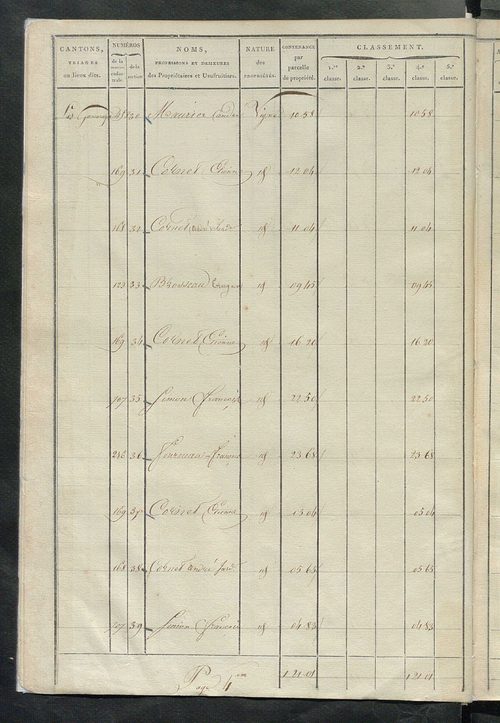 CANTONS, TRIAGES ou lieux dits.
NUMÉROS de la matrice cadastrale. de la section
NOMS, PROFESSIONS ET DEMEURES des Propriétaires et Usufruitiers.
NATURE des PROPRIÉTÉS.
CONTENANCE par parcelle de propriété.
CLASSEMENT.
1.re classe. 2.e classe. 3.e classe. 4.e classe. 5.e classe.
Les 30 Maurice Vigne 10.58 10.58
169 31 Cornet Étienne id 12.04 12.04
168 32 Cornet André id 11.04 11.04
123 33 Brousseau id 09.45 09.45
169 34 Cornet Étienne id 16.20 16.20
707 35 Simon François id 22.50 22.50
246 36 François id 23.68 23.68
169 37 Cornet Étienne id 05.04 05.04
168 38 Cornet André id 05.65 05.65
707 39 Simon François id 04.83 04.83
Page 4em 1.21.01 1.21.01